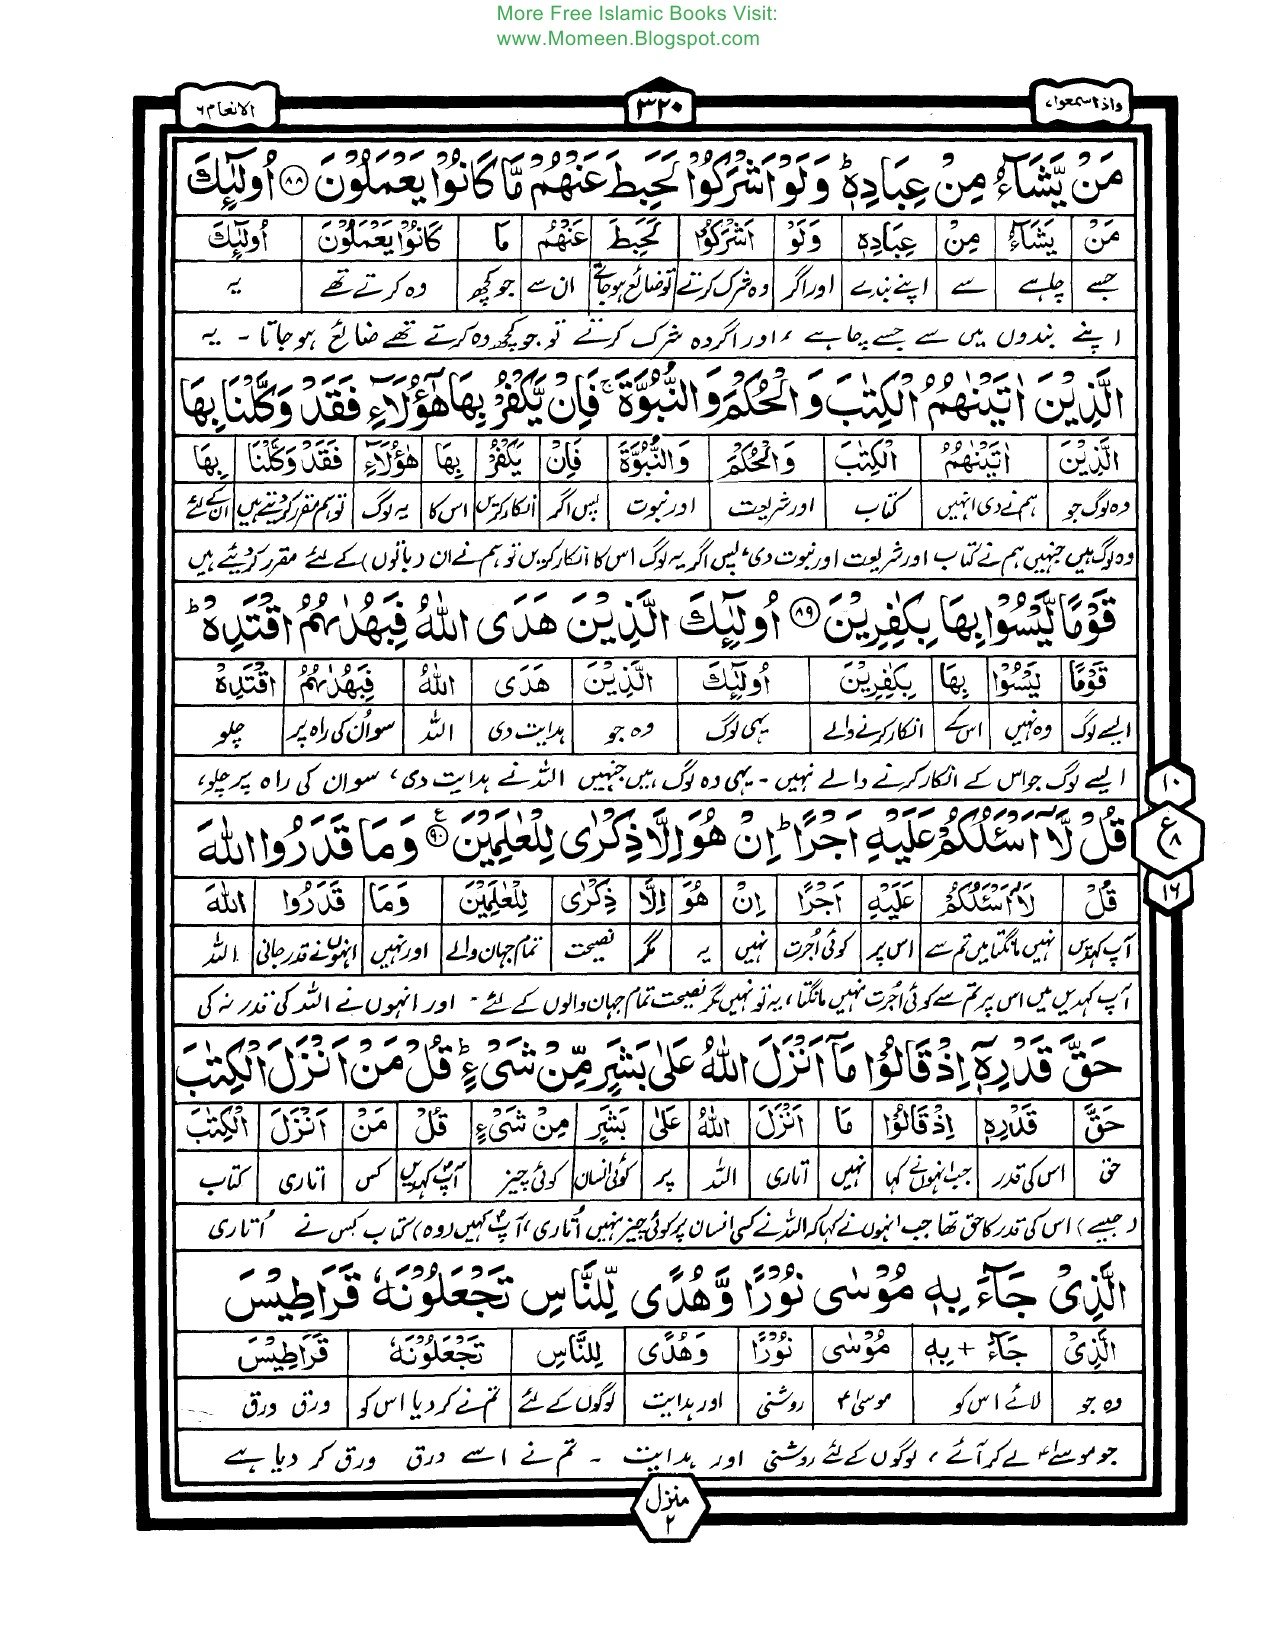 More Free Islamic Books Visit:
www.Momeen.Blogspot.com
واذاسمعوا٧ ٣٢٠ الانعام٦
مَنْ يَّشَآءُ مِنْ عِبَادِهٖ ؕ وَلَوْ اَشْرَكُوْا لَحَبِطَ عَنْهُمْ مَّا كَانُوْا يَعْمَلُوْنَ ﴿۸۸﴾ اُولٰٓئِكَ
مَنْ يَشَآءُ مِنْ عِبَادِهٖ وَلَوْ اَشْرَكُوْا لَحَبِطَ عَنْهُمْ مَا كَانُوْا يَعْمَلُوْنَ اُولٰٓئِكَ
جسے چاہے سے اپنے بندے اور اگر وہ شرک کرتے تو ضائع ہوجاتے ان سے جو کچھ وہ کرتے تھے یہ
اپنے بندوں میں سے جسے چاہے ، اور اگر وہ شرک کرتے تو جو کچھ وہ کرتے تھے ضائع ہوجاتا ۔ یہ
الَّذِيْنَ اٰتَيْنٰهُمُ الْكِتٰبَ وَالْحُكْمَ وَالنُّبُوَّةَ ۚ فَاِنْ يَّكْفُرْ بِهَا هٰٓؤُلَآءِ فَقَدْ وَكَّلْنَا بِهَا
الَّذِيْنَ اٰتَيْنٰهُمُ الْكِتٰبَ وَالْحُكْمَ وَالنُّبُوَّةَ فَاِنْ يَكْفُرْ بِهَا هٰٓؤُلَآءِ فَقَدْ وَكَّلْنَا بِهَا
وہ لوگ جو ہم نے دی انہیں کتاب اور شریعت اور نبوت پس اگر انکار کریں اس کا یہ لوگ تو ہم مقرر کردیتے ہیں ان کے لئے
وہ لوگ ہیں جنہیں ہم نے کتاب اور شریعت اور نبوت دی، پس اگر یہ لوگ اس کا انکار کریں تو ہم نے ان (باتوں) کے لئے مقرر کردیئے ہیں
قَوْمًا لَّيْسُوْا بِهَا بِكٰفِرِيْنَ ﴿۸۹﴾ اُولٰٓئِكَ الَّذِيْنَ هَدَى اللّٰهُ فَبِهُدٰىهُمُ اقْتَدِهْ ؕ
قَوْمًا لَيْسُوْا بِهَا بِكٰفِرِيْنَ اُولٰٓئِكَ الَّذِيْنَ هَدَى اللّٰهُ فَبِهُدٰىهُمُ اقْتَدِهْ
ایسے لوگ وہ نہیں اس کے انکار کرنے والے یہی لوگ وہ جو ہدایت دی اللہ سو اُن کی راہ پر چلو
ایسے لوگ جو اس کے انکار کرنے والے نہیں ۔ یہی وہ لوگ ہیں جنہیں اللہ نے ہدایت دی، سو ان کی راہ پر چلو،
۱۰
ع ۸
۱۶
قُلْ لَّآ اَسْـَٔلُكُمْ عَلَيْهِ اَجْرًا ؕ اِنْ هُوَ اِلَّا ذِكْرٰى لِلْعٰلَمِيْنَ ﴿۹۰﴾ وَمَا قَدَرُوا اللّٰهَ
قُلْ لَآ اَسْـَٔلُكُمْ عَلَيْهِ اَجْرًا اِنْ هُوَ اِلَّا ذِكْرٰى لِلْعٰلَمِيْنَ وَمَا قَدَرُوا اللّٰهَ
آپ کہدیں نہیں مانگتا میں تم سے اس پر کوئی اُجرت نہیں یہ مگر نصیحت تمام جہان والے اور نہیں انہوں نے قدر جانی اللہ
آپ کہدیں میں اس پر تم سے کوئی اُجرت نہیں مانگتا، یہ تو نہیں مگر نصیحت تمام جہان والوں کے لئے ۔ اور انہوں نے اللہ کی قدر نہ کی
حَقَّ قَدْرِهٖٓ اِذْ قَالُوْا مَآ اَنْزَلَ اللّٰهُ عَلٰى بَشَرٍ مِّنْ شَىْءٍ ؕ قُلْ مَنْ اَنْزَلَ الْكِتٰبَ
حَقَّ قَدْرِهٖ اِذْ قَالُوْا مَا اَنْزَلَ اللّٰهُ عَلٰى بَشَرٍ مِنْ شَىْءٍ قُلْ مَنْ اَنْزَلَ الْكِتٰبَ
حق اس کی قدر جب انہوں نے کہا نہیں اتاری اللہ پر کوئی انسان کوئی چیز آپ کہدیں کس اتاری کتاب
(جیسے) اس کی قدر کا حق تھا جب انہوں نے کہا کہ اللہ نے کسی انسان پر کوئی چیز نہیں اُتاری، آپ کہیں (وہ) کتاب کس نے اُتاری
الَّذِىْ جَآءَ بِهٖ مُوْسٰى نُوْرًا وَّهُدًى لِّلنَّاسِ تَجْعَلُوْنَهٗ قَرَاطِيْسَ
الَّذِىْ جَآءَ + بِهٖ مُوْسٰى نُوْرًا وَهُدًى لِلنَّاسِ تَجْعَلُوْنَهٗ قَرَاطِيْسَ
وہ جو لائے اس کو موسیٰؑ روشنی اور ہدایت لوگوں کے لئے تم نے کردیا اس کو ورق ورق
جو موسےٰؑ لے کر آئے ، لوگوں کے لئے روشنی اور ہدایت ۔ تم نے اسے ورق ورق کر دیا ہے
منزل ۲